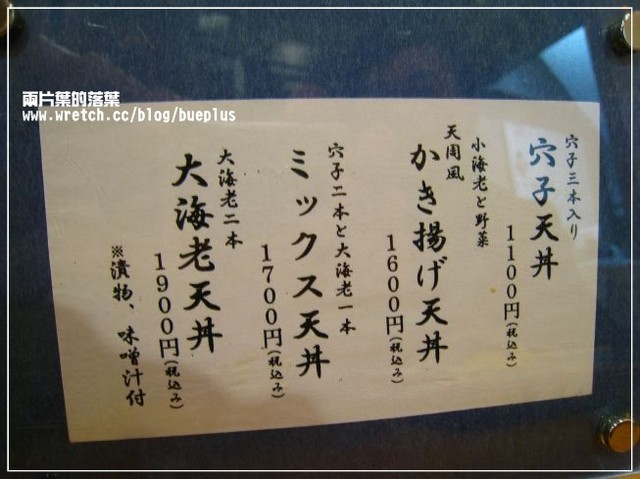 兩片葉的落葉
www.wretch.cc/blog/bueplus
穴子三本入り
穴子天丼
1100円(税込み)
小海老と野菜
天周風
かき揚げ天丼
1600円(税込み)
穴子二本と大海老一本
ミックス天丼
1700円(税込み)
大海老二本
大海老天丼
1900円(税込み)
※漬物、味噌汁付